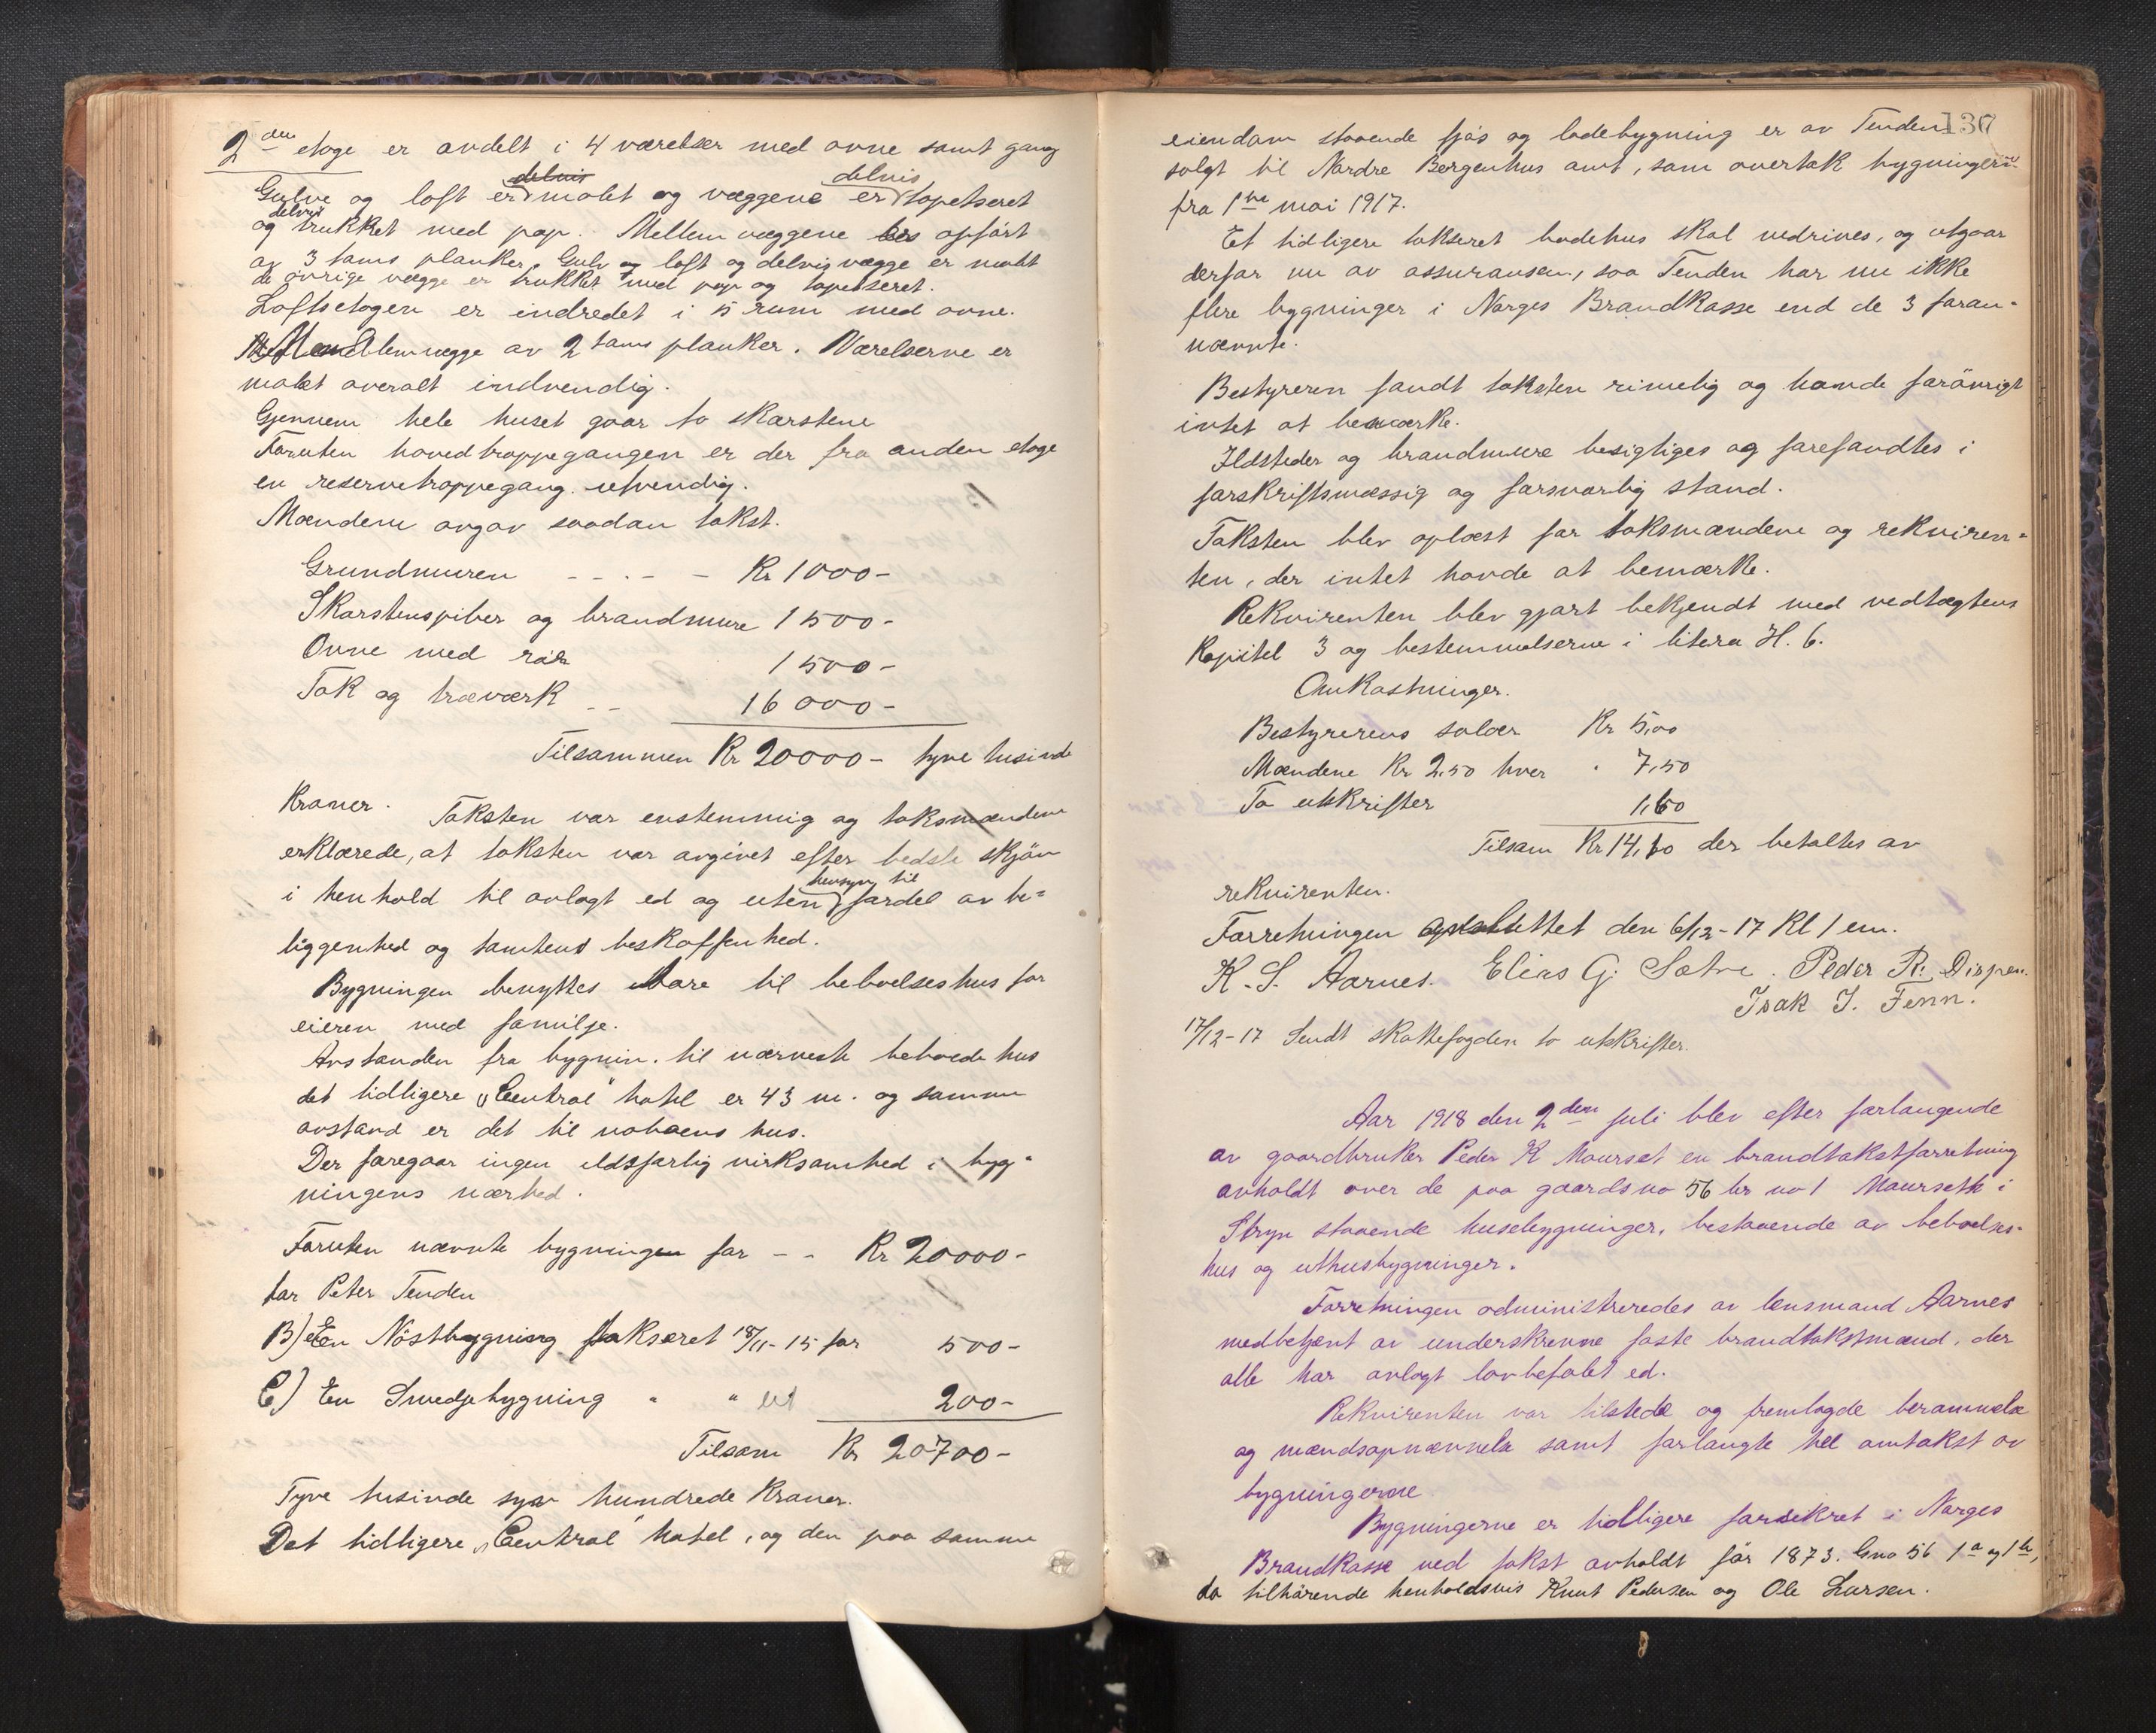 2den etage er avdelt i 4 værelser med ovne samt gang
Gulve og loft er delvis malet og væggene er delvis tapetseret
og delvis trukket med pap. Mellemvæggene er opført
av 3 toms planker. Gulv og loft og delvis vægge er malt
de øvrige vægge er trukket med pap og tapetseret.
Loftsetagen er indredet i 5 rum med ovne.
Mellemvægge av 2 toms planker. Værelserne er
malet overalt indvendig.
Gjennem hele huset gaar to skorstene
Foruten hovedtroppegangen er der fra anden etage
en reservetroppegang utvendig.
Mændene avgav saadan takst.
Grundmuren - - - - Kr 1000-
Skorstenspiber og brandmure 1500-
Ovne med rör 1500-
Tak og træværk - - 16000-
Tilsammen Kr 20000- tyve tusinde
Kroner. Taksten var enstemmig og taksmændene
erklærede, at taksten var avgivet efter bedste skjön
i henhold til avlagt ed og uten hensyn til fordel av be=
liggenhed og tomtens beskaffenhed.
Bygningen benyttes bare til beboelseshus for
eieren med familje.
Avstanden fra bygnin. til nærmeste beboede hus
det tidligere „Central" hotel er 43 m. og samme
avstand er det til naboens hus.
Der foregaar ingen ildsfarlig virksomhed i byg=
ningens nærhed.
Foruten nævnte bygningen for - - Kr 20000-
har Peter Tenden
B) En Nöstbygning takseret 18/11-15 for 500-
C) En Smedjebygning " " 200-
Tilsam Kr 20700-
Tyve tusinde syv hundrede Kroner.
Det tidligere „Central" hotel, og den paa samme
130
eiendom staaende fjös og ladebygning er av Tenden
solgt til Nordre Bergenhus amt, som overtok bygningerne
fra 1ste mai 1917.
Et tidligere takseret badehus skal nedrives, og utgaar
derfor nu av assuransen, saa Tenden har nu ikke
flere bygninger i Norges Brandkasse end de 3 foran=
nævnte.
Bestyreren fandt taksten rimelig og havde forövrigt
intet at bemærke.
Ildsteder og brandmure besigtiges og forefandtes i
forskriftsmæssig og forsvarlig stand.
Taksten blev oplæst for taksmændene og rekviren=
ten, der intet havde at bemærke.
Rekvirenten blev gjort bekjendt med vedtægtens
Kapitel 3 og bestemmelserne i litera H. 6.
Omkostninger.
Bestyrerens salær Kr 5,00
Mændene Kr 2,50 hver " 7,50
To utskrifter 1,60
Tilsam Kr 14,10 der betaltes av
rekvirenten.
Forretningen avsluttet den 6/12-17 Kl 1 em.
K. S. Aarnes. Elias G. Sætre. Peder R. Dispen.
Isak J. Tenn.
17/12-17 Sendt skattefogden to utskrifter.
Aar 1918 den 2den juli blev efter forlangende
av gaardbruker Peder K Mourset en brandtakstforretning
avholdt over de paa gaardsno 56 br no 1 Maurseth i
Stryn staaende husebygninger, bestaaende av beboelses=
hus og uthusbygninger.
Forretningen administreredes av lensmand Aarnes
medbetjent av underskrevne faste brandtakstmænd, der
alle har avlagt lovbefalet ed.
Rekvirenten var tilstede og fremlagde berammelse
og mændsopnævnelse samt forlangte hel omtakst av
bygningerne
Bygningerne er tidligere forsikret i Norges
Brandkasse ved takst avholdt för 1873. Gno 56 1a og 1b,
da tilhörende henholdsvis Knut Pedersen og Ole Larsen.